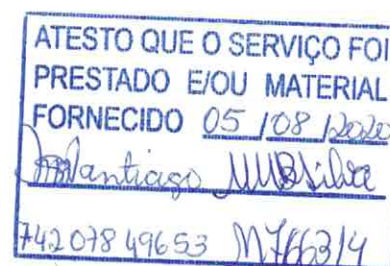 ATESTO QUE O SERVIÇO FOI
PRESTADO E/OU MATERIAL
FORNECIDO 05/08/2020
Santiago Silva
74207849653 M766314